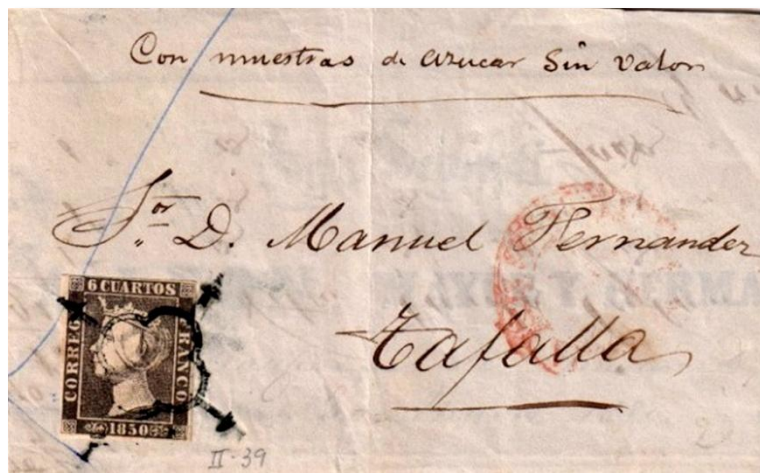 Con muestras de azucar Sin valor
Sor. D. Manuel Fernandez
Tafalla
6 CUARTOS
CORREOS
FRANCO
1850
II-39